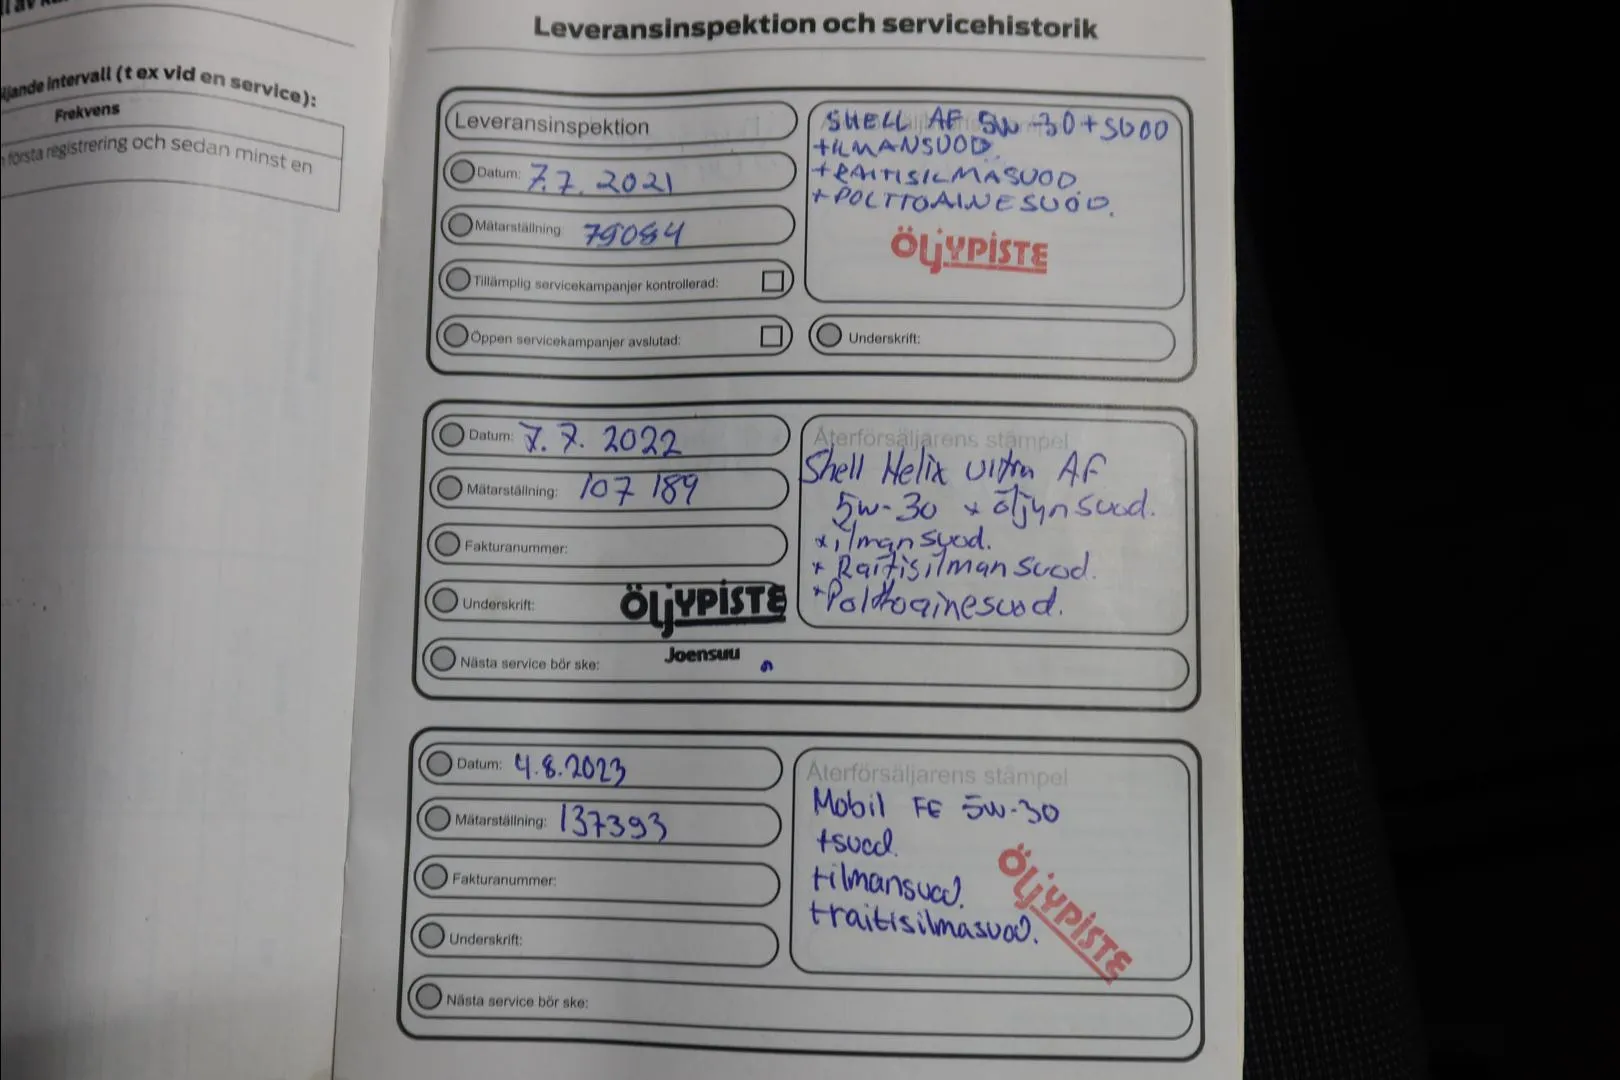 Leveransinspektion och servicehistorik
intervall (t ex vid en service):
Frekvens
första registrering och sedan minst en
Leveransinspektion
Datum: 7.7.2021
Mätarställning 79084
Tillämplig servicekampanjer kontrollerad:
Öppen servicekampanjer avslutad:
SHELL AF 5W-30+SUOD
+ILMANSUOD.
+RAITISILMASUOD.
+POLTTOAINESUOD.
ÖLJYPISTE
Underskrift:
Datum: 7.7.2022
Mätarställning: 107 189
Fakturanummer:
Underskrift:
ÖLJYPISTE
Joensuu
Nästa service bör ske:
Återförsäljarens stämpel
Shell Helix Ultra AF
5w-30 + öljynsuod.
+ilmansuod.
+ Raitisilmansuod.
+Polttoainesuod.
Datum: 4.8.2023
Mätarställning: 137393
Fakturanummer:
Underskrift:
Nästa service bör ske:
Återförsäljarens stämpel
Mobil FE 5W-30
+suod.
+ilmansuod.
+raitisilmasuod.
ÖLJYPISTE